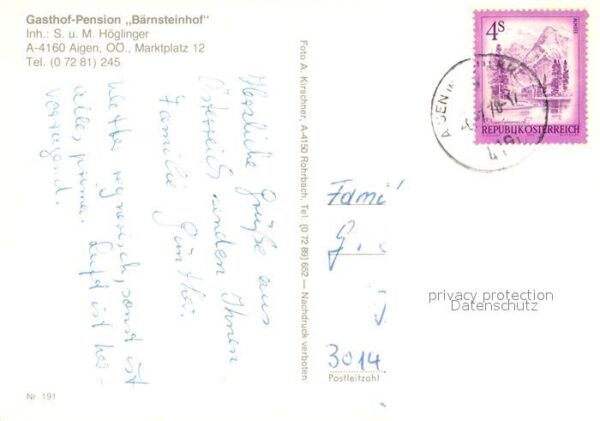 Gasthof-Pension „Bärnsteinhof"
Inh.: S. u. M. Höglinger
A-4160 Aigen, OÖ., Marktplatz 12
Tel. (0 72 81) 245
Herzliche Grüße aus
Österreich senden Ihnen
Familie Günther
Wetter regnerisch, sonst ist
alles prima. Luft ist her-
vorragend.
Nr. 191
Foto A. Kirschner, A-4150 Rohrbach, Tel. (0 72 89) 652 — Nachdruck verboten
4S
REPUBLIK ÖSTERREICH
AIGEN
Fami
G.
privacy protection
Datenschutz
3014
Postleitzahl